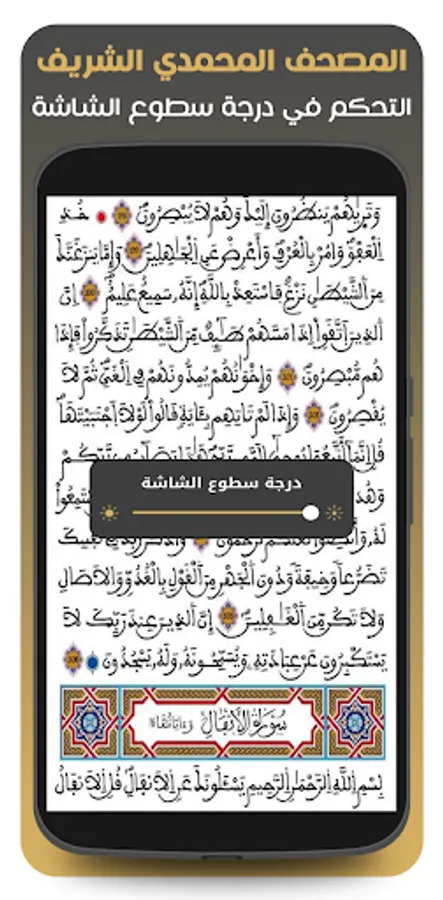 المصحف المحمدي الشريف
التحكم في درجة سطوع الشاشة
وَتَرِيٰهُمْ يَنظُرُونَ إِلَيْكَ وَهُمْ لَا يُبْصِرُونَ خُذِ
اِلْعَفْوَ وَامُرْ بِالْعُرْفِ وَأَعْرِضْ عَنِ الْجَٰهِلِينَ وَإِمَّا يَنزَغَنَّكَ
مِنَ اَلشَّيْطَٰنِ نَزْغٌ فَاسْتَعِذْ بِاللَّهِ إِنَّهُۥ سَمِيعٌ عَلِيمٌ إِنَّ
اَلذِينَ اَتَّقَوِاْ اِذَا مَسَّهُمْ طَٰٓئِفٌ مِّنَ اَلشَّيْطَٰنِ تَذَكَّرُواْ فَإِذَا
هُم مُّبْصِرُونَ وَإِخْوَٰنُهُمْ يُمِدُّونَهُمْ فِي اِلْغَيِّ ثُمَّ لَا
يُقْصِرُونَ وَإِذَا لَمْ تَاتِهِم بِـَٔايَةٍ قَالُواْ لَوْلَا اَجْتَبَيْتَهَا
درجة سطوع الشاشة
تَضَرُّعاً وَخِيفَةً وَدُونَ اَلْجَهْرِ مِنَ اَلْقَوْلِ بِالْغُدُوِّ وَالَاصَالِ
وَلَا تَكُن مِّنَ اَلْغَٰفِلِينَ إِنَّ اَلذِينَ عِندَ رَبِّكَ لَا
يَسْتَكْبِرُونَ عَنْ عِبَادَتِهِۦ وَيُسَبِّحُونَهُۥ وَلَهُۥ يَسْجُدُونَ
سُورَةُ الْأَنْفَالِ
بِسْمِ اِللَّهِ اِلرَّحْمَٰنِ اِلرَّحِيمِ يَسْـَٔلُونَكَ عَنِ اِلَانفَالِ قُلِ اِلَانفَالُ